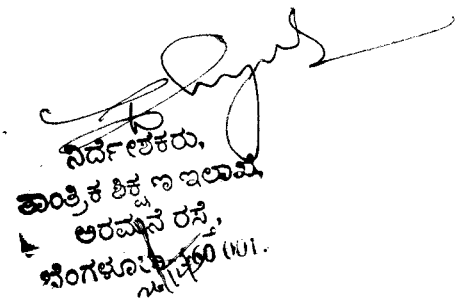 ನಿರ್ದೇಶಕರು,
ತಾಂತ್ರಿಕ ಶಿಕ್ಷಣ ಇಲಾಖೆ,
ಅರಮನೆ ರಸ್ತೆ,
ಬೆಂಗಳೂರು-560 001.